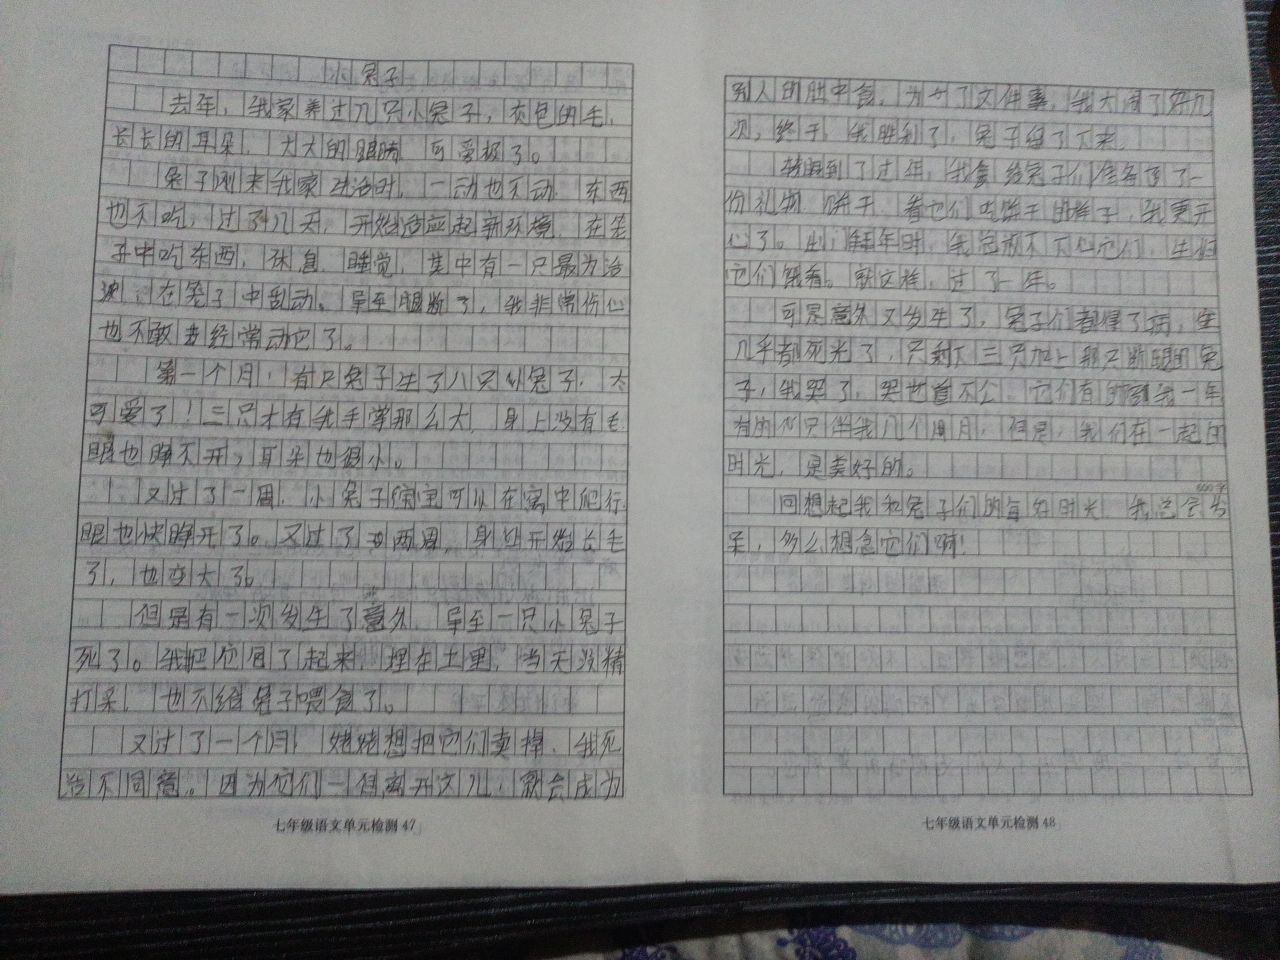 小兔子
去年，我家养过几只小兔子，灰色的毛，
长长的耳朵，大大的眼睛，可爱极了。
兔子刚来我家生活时，一动也不动，东西
也不吃，过了几天，开始适应起新环境，在笼
子中吃东西，休息，睡觉，其中有一只最为活
泼，在笼子中乱动。导至腿断了，我非常伤心
也不敢经常动它了。
第一个月，有只兔子生了八只小兔子，太
可爱了！三只才有我手掌那么大，身上没有毛
眼也睁不开，耳朵也很小。
又过了一周，小兔子便宝可以在窝中爬行
眼也快睁开了。又过了两周，身上开始长毛
了，也变大了。
但是有一次发生了意外，导至一只小兔子
死了。我把它包了起来，埋在土里，当天没精
打采，也不给兔子喂食了。
又过了一个月，姥姥想把它们卖掉，我死
活不同意。因为它们一但离开这儿，就会成为
别人的肚中食，为了这件事，我大闹了好几
次，终于，我胜利了，兔子留了下来。
到了过年，我给兔子们准备了一
份礼物，饼干，看它们吃饼干的样子，我更开
心了。出门拜年时，我它放不下心它们，生怕
它们饿着。就这样，过了一年。
可是意外又发生了，兔子们都得了病，
几乎都死光了，只剩下三只加上那只断腿的兔
子，我哭了，哭世道不公，它们有的陪我一年
有的仅只伴我几个月，但是，我们在一起的
时光，是美好的。
600字
回想起我和兔子们的每好时光，我总会发
呆，多么想念它们啊！
七年级语文单元检测 47
七年级语文单元检测 48